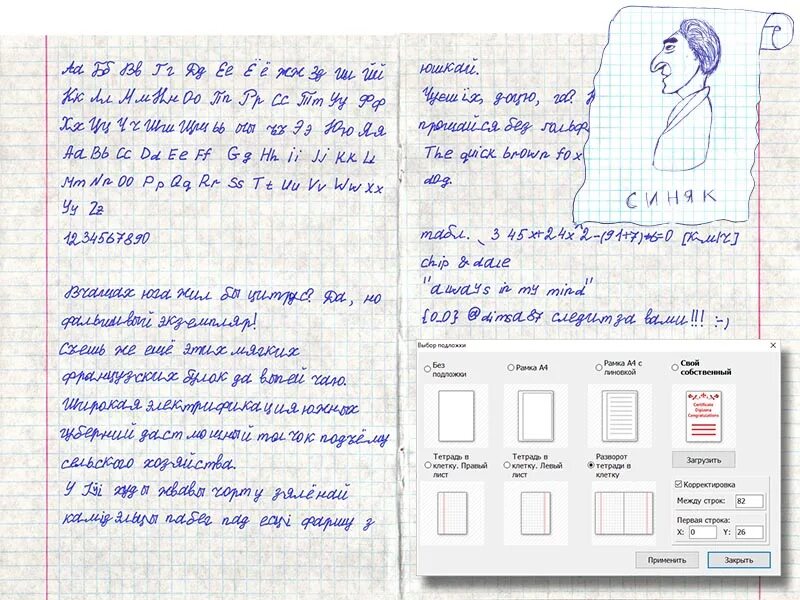 Аа Бб Вв Гг Дд Ее Ёё Жж Зз Ии Йй
Кк Лл Мм Нн Оо Пп Рр Сс Тт Уу Фф
Хх Цц Чч Шш Щщ Ьь Ыы Ъъ Ээ Юю Яя
Aa Bb Cc Dd Ee Ff Gg Hh Ii Jj Kk Ll
Mm Nn Oo Pp Qq Rr Ss Tt Uu Vv Ww Xx
Yy Zz
1234567890
В чащах юга жил бы цитрус? Да, но
фальшивый экземпляр!
Съешь же ещё этих мягких
французских булок да выпей чаю.
Широкая электрификация южных
губерний даст мощный толчок подъёму
сельского хозяйства.
У Іўі худы жвавы чорт у зялёнай
камізэльцы пабег пад'есці фаршу з
юшкай.
Чуєш їх, доцю, га?
прощайся без гольф
The quick brown fox
dog.
табл. 3 45x+24x^2-(91+7)+6=0 [км/ч]
chip & dale
"always in my mind"
{0_0} @dimsa87 следит за вами!!! :-)
СИНЯК
Выбор подложки
Без подложки
Рамка А4
Рамка А4 с линовкой
Свой собственный
Certificate
Diploma
Congratulations
Загрузить
Тетрадь в клетку. Правый лист
Тетрадь в клетку. Левый лист
Разворот тетради в клетку
Корректировка
Между строк: 82
Первая строка:
X: 0 Y: 26
Применить
Закрыть